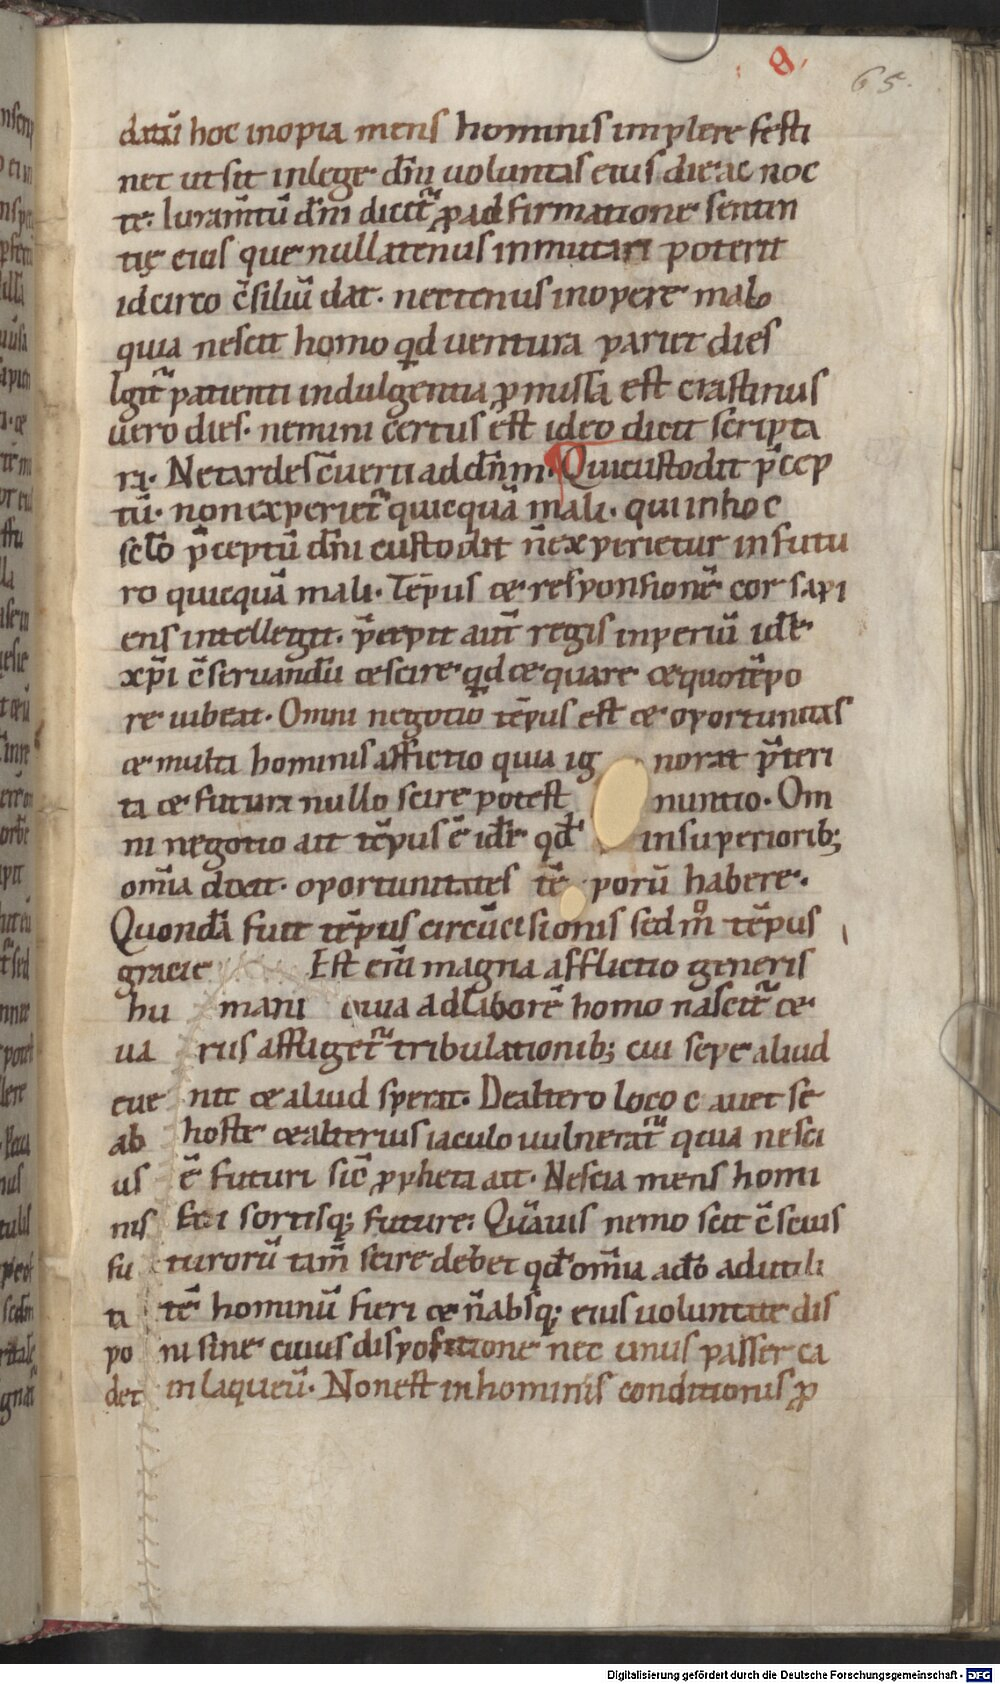 9.
65.
datũ hoc inopia mens hominis implere festi
net ut sit in lege dñi uoluntas eius die ac noc
te. Iuram̃tũ dñi dicit᷑ ꝓ adfirmatione senten
tię eius que nullatenus inmutari poterit
idcirco c̃siliũ dat. ne tenus in opere malo
quia nescit homo qd̄ uentura pariet dies
Igit᷑ patienti indulgentia ꝓmissa est crastinus
uero dies. nemini certus est ideo dicit scripta
ri. Ne tardes c̃uerti ad dñm. Qui custodit p̃cep
tũ. non experiet᷑ quicquã mali. qui in hoc
sc̄lo p̃ceptũ dñi custodit ñ experietur in futu
ro quicquã mali. Tẽpus ⁊ responsionẽ cor sapi
ens intellegit. p̃cepit aut̃ regis inperiũ id ē
xp̄i c̃seruandũ ⁊ scire qd̄ ⁊ quare ⁊ quo tẽpo
re iubeat. Omni negotio tẽpus est ⁊ oportunitas
⁊ multa hominis afflictio quia ig norat p̃teri
ta ⁊ futura nullo scire potest nuntio. Om
ni negotio ait tẽpus ẽ id ē qd̄ in superiorib;
om̃ia dixit. oportunitates tẽ porũ habere.
Quondã fuit tẽpus circũcisionis sed m̊ tẽpus
gracie Est eñi magna afflictio generis
hu mani quia ad laborẽ homo nascit᷑ ⁊
ua rus affliget᷑ tribulationib; cui sepe aliud
eue nit ⁊ aliud sperat. De altero loco c auet se
ab hoste ⁊ alterius iaculo uulnerat᷑ quia nesci
us ẽ futuri sic̃ ꝓpheta ait. Nescia mens homi
nis fati sortisq; future. Quãuis nemo sit c̃scius
fu turorũ tam̃ scire debet qd̄ om̃ia a dō ad utili
ta tẽ hominũ fieri ⁊ ñ absq; eius uoluntate dis
po ni sine cuius dispositione nec unus passer ca
det in laqueũ. Non est in hominis conditionis ꝓ
Digitalisierung gefördert durch die Deutsche Forschungsgemeinschaft - DFG